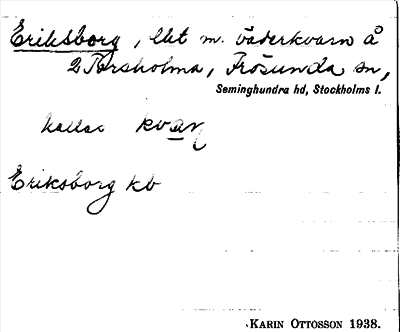 Eriksborg, lht m. väderkvarn å
2 Torsholma, Frösunda sn,
Seminghundra hd, Stockholms l.
kallas kvan
Eriksborg kb
KARIN OTTOSSON 1938.